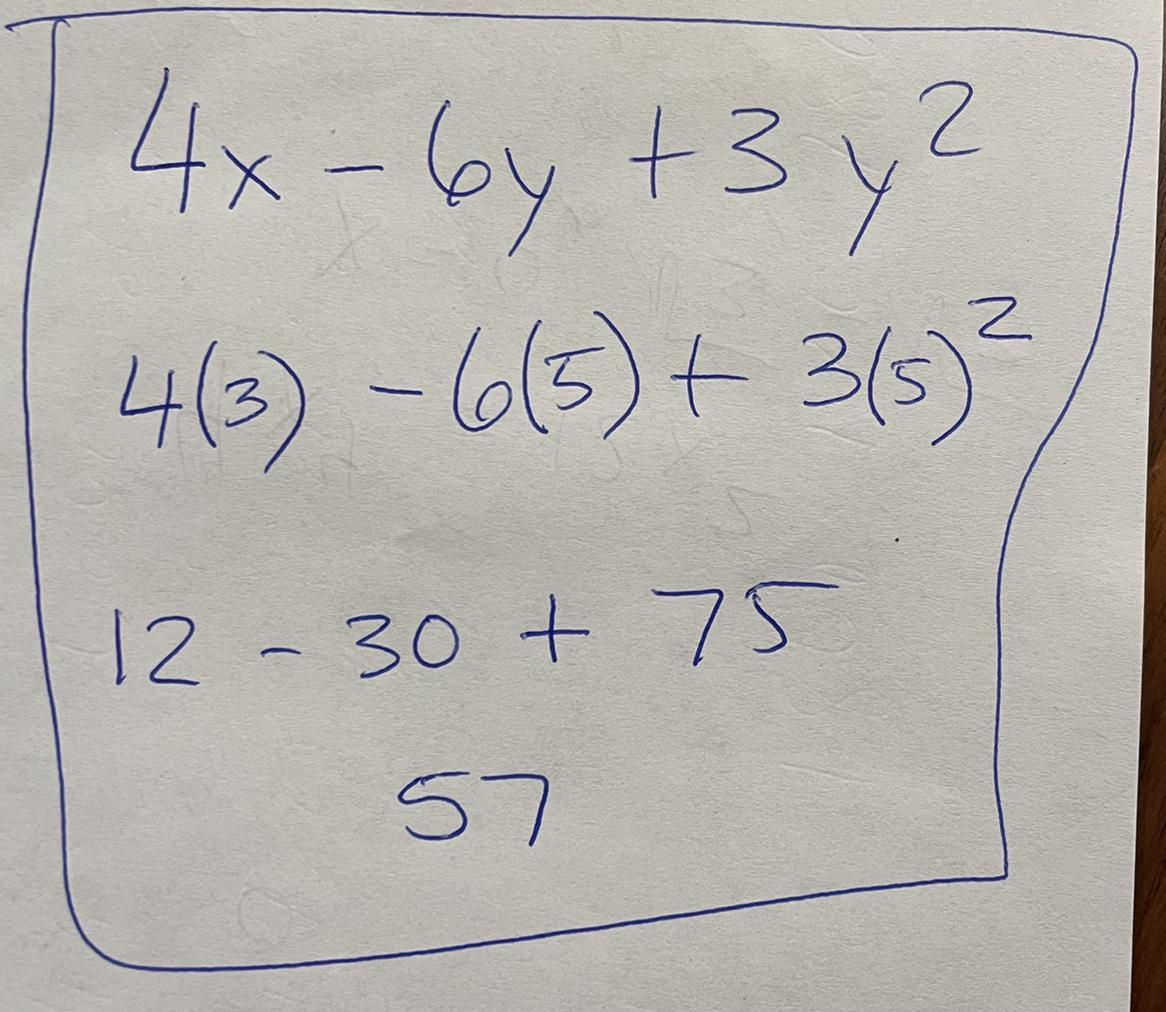 4x - 6y + 3y²
4(3) - 6(5) + 3(5)²
12 - 30 + 75
57